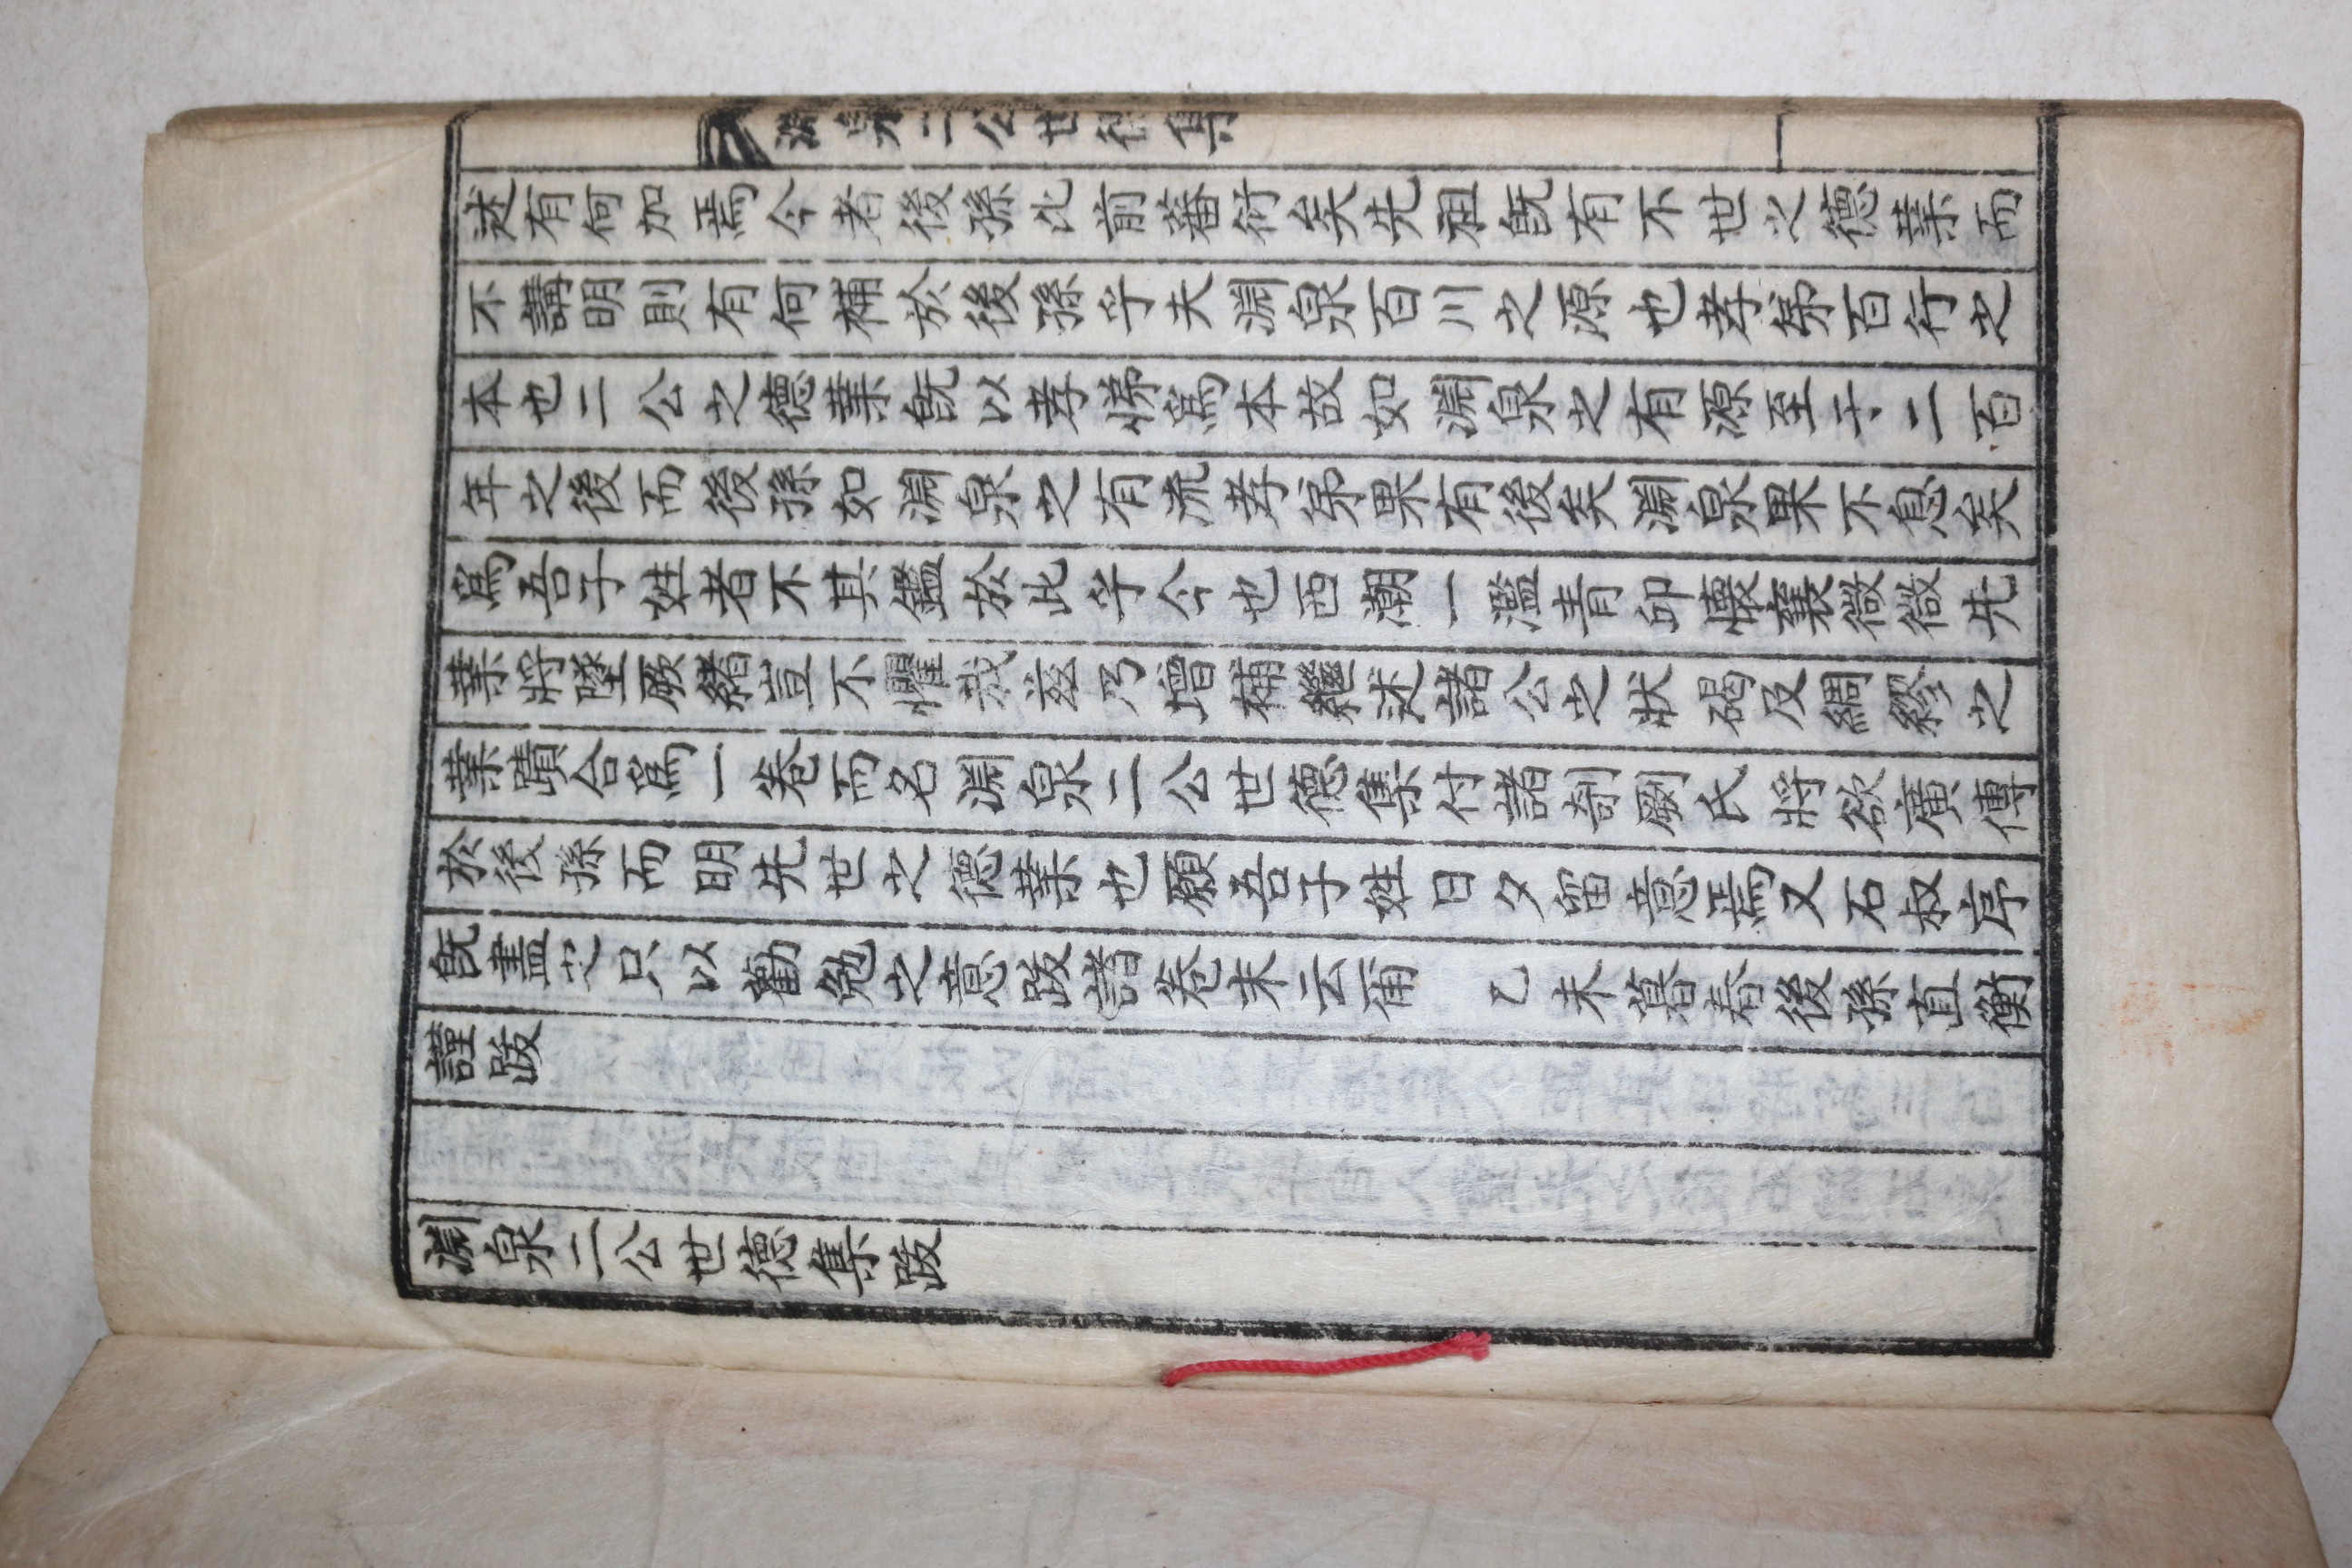 淵泉二公世德集
述有何加焉今者後孫比前蕃衍矣先祖旣有不世之德業而
不講明則有何補於後孫乎夫淵泉百川之源也孝弟百行之
本也二公之德業旣以孝悌爲本故如淵泉之有源至于二百
年之後而後孫如淵泉之有流孝弟果有後矣淵泉果不息矣
爲吾子姓者不其鑑於此乎今也西潮一濫靑邱懷襄微微先
業將墜厥緖豈不懼哉玆乃增補繼述諸公之狀碣及綢繆之
業蹟合爲一卷而名淵泉二公世德集付諸剞劂氏將欲廣傳
於後孫而明先世之德業也願吾子姓日夕留意焉又石叔序
旣盡之只以勸勉之意跋諸卷末云爾　乙未暮春後孫直衡
謹跋
淵泉二公世德集跋